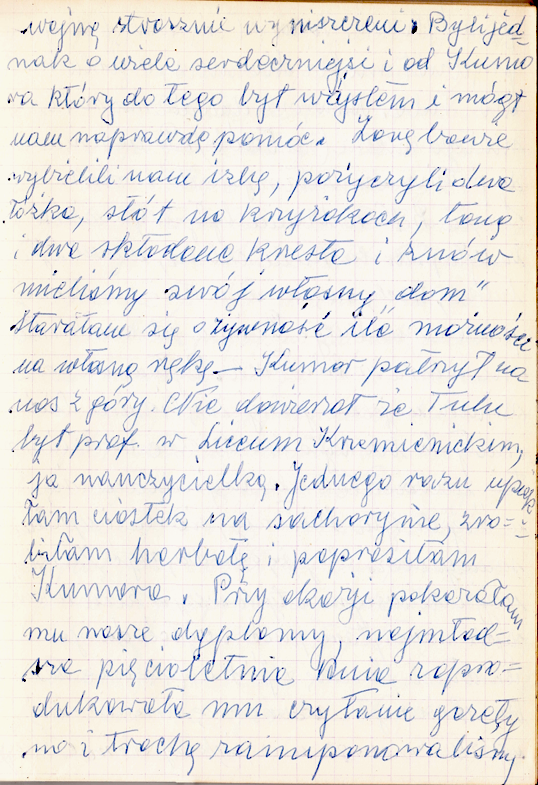 wojnę strasznie wyniszczeni. Byli jed-
nak o wiele serdeczniejsi i od Kumo
ra który do tego był wójtem i mógł
nam naprawdę pomóc. Zaraz
wybielili nam izbę, pożyczyli dwa
łóżka, stół na krzyżakach, ławę
i dwa składane krzesła i znów
mieliśmy swój własny „dom"
Starałam się o żywność ile możności
na własną rękę — Kumor patrzył na
nas z góry. Nie dowierzał że Tulu
był prof. w Liceum Krzemienieckim,
ja nauczycielką. Jednego razu upiek
łam ciastek na sacharynie, zro-
biłam herbatę i poprosiłam
Kumora. Przy okazji pokazałam
mu nasze dyplomy, najmłod-
sza pięcioletnia Ania zapro-
dukowała mu czytanie gazety
no i trochę zaimponowaliśmy.